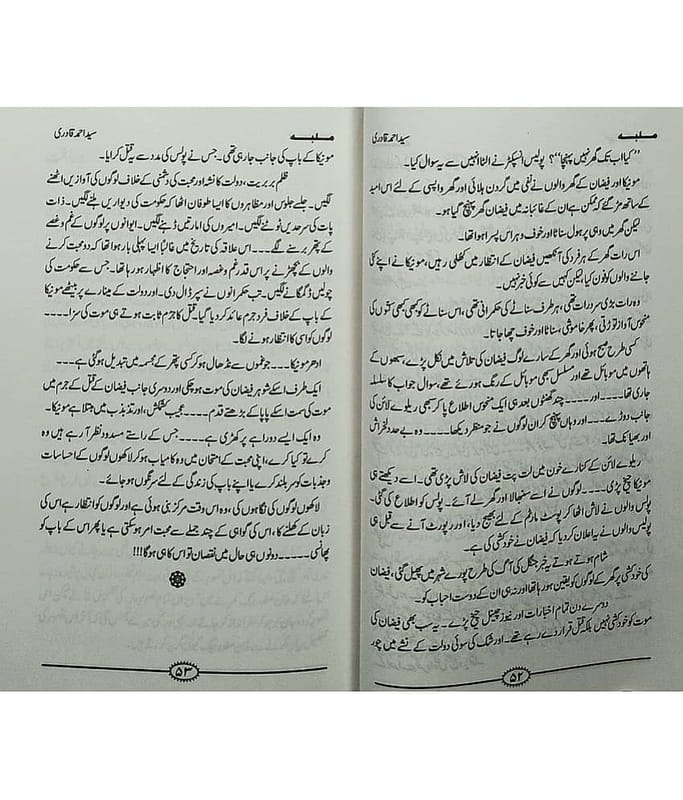 ملبہ سید احمد قادری
”کیا اب تک گھر نہیں پہنچا“؟ پولیس انسپکٹر نے الٹا انہیں سے یہ سوال کیا۔
مونیکا اور فیضان کے گھر والوں نے نفی میں گردن ہلائی اور گھر واپسی کے لئے اس امید
کے ساتھ مڑ گئے کہ ممکن ہے ان کے غائبانہ میں فیضان گھر پہنچ گیا ہو۔
لیکن گھر میں وہی پر ہول سناٹا اور خوف و ہراس پسرا ہوا تھا۔
اس رات گھر کے ہر فرد کی آنکھیں فیضان کے انتظار میں کھلی رہیں، مونیکا نے اپنے کئی
جاننے والوں کو فون کیا، لیکن کہیں سے کوئی خبر نہیں۔
وہ رات بڑی سرد رات تھی، ہر طرف سناٹے کی حکمرانی تھی، اس سناٹے کو کبھی کبھی کتوں کی
منحوس آواز توڑتی، پھر خاموشی سناٹا اور خوف چھا جاتا۔
کسی طرح صبح ہوئی اور گھر کے سارے لوگ فیضان کی تلاش میں نکل پڑے، سبھوں کے
ہاتھوں میں موبائل تھے اور مسلسل سبھی موبائل کے رنگ ہو رہے تھے، سوال جواب کا سلسلہ
جاری تھا۔۔۔۔اور۔۔۔۔ چند گھنٹوں بعد ہی ایک منحوس اطلاع پا کر سبھی ریلوے لائن کی
جانب دوڑے۔۔۔ اور وہاں پہنچ کر ان لوگوں نے جو منظر دیکھا۔۔۔۔ وہ بے حد دلخراش
اور بھیانک تھا۔
ریلوے لائن کے کنارے خون میں لت پت فیضان کی لاش پڑی تھی۔ اسے دیکھتے ہی
مونیکا چیخ پڑی۔۔۔۔ لوگوں نے اسے سنبھالا اور گھر لے آئے۔ پولس کو اطلاع کی گئی۔
پولس والوں نے لاش اٹھا کر پوسٹ مارٹم کے لئے بھیج دیا، اور رپورٹ آنے سے قبل ہی
پولیس والوں نے یہ اعلان کر دیا کہ فیضان نے خودکشی کی ہے۔
شام ہوتے ہوتے یہ خبر جنگل کی آگ کی طرح پورے شہر میں پھیل گئی، فیضان
کی خودکشی پر گھر کے لوگوں کو یقین ہو رہا تھا اور نہ ہی ان کے دوست احباب کو۔
دوسرے دن تمام اخبارات اور نیوز چینل چیخ پڑے۔ یہ سب بھی فیضان کی
موت کو خودکشی نہیں بلکہ قتل قرار دے رہے تھے۔ اور شک کی سوئی دولت کے نشے میں چور
۵۲
ملبہ سید احمد قادری
مونیکا کے باپ کی جانب جا رہی تھی۔ جس نے پولس کی مدد سے یہ قتل کرایا۔
ظلم بربریت، دولت کا نشہ اور محبت کی دشمنی کے خلاف لوگوں کی آوازیں اٹھنے
لگیں۔ جلسے جلوس اور مظاہروں کا ایسا طوفان اٹھا کہ حکومت کی دیواریں ہلنے لگیں۔ ذات
پات کی سرحدیں ٹوٹنے لگیں۔ امیروں کی امارتیں ڈہنے لگیں۔ ایوانوں پر لوگوں کے غم و غصے
کے پتھر برسنے لگے۔۔۔۔ اس علاقہ کی تاریخ میں غالباً ایسا پہلی بار ہوا تھا کہ دو محبت کرنے
والوں کے بچھڑنے پر اس قدر غم و غصہ اور احتجاج کا اظہار ہو رہا تھا۔ جس سے حکومت کی
چولیں ڈگمگانے لگیں۔ تب حکمرانوں نے سپر ڈال دی۔ اور دولت کے مینارے پر بیٹھے مونیکا
کے باپ کے خلاف فرد جرم عائد کر دیا گیا۔ قتل کا جرم ثابت ہوتے ہی موت کی سزا۔۔۔۔
لوگوں کو اسی کا انتظار ہونے لگا۔
ادھر مونیکا۔۔۔۔ جو غموں سے نڈھال ہو کر کسی پتھر کے مجسمے میں تبدیل ہو گئی ہے۔۔۔۔
ایک طرف اسکے شوہر فیضان کی موت ہو چکی اور دوسری جانب فیضان کے قتل کے جرم میں
موت کی سمت اسکے پاپا کے بڑھتے قدم۔۔۔۔ عجیب کشمکش، اور تذبذب میں مبتلا ہے مونیکا۔
وہ ایک ایسے دوراہے پر کھڑی ہے۔۔۔۔ جس کے راستے مسدود نظر آ رہے ہیں وہ
کرے تو کیا کرے، اپنی محبت کے امتحان میں وہ کامیاب ہو کر لاکھوں لوگوں کے احساسات
و جذبات کو سربلند کرے یا اپنے باپ کی زندگی کے لئے سرنگوں ہو جائے۔
لاکھوں لوگوں کی نگاہوں کی، وہ اس وقت مرکز بنی ہوئی ہے اور لوگوں کو انتظار ہے اس کی
زبان کے کھلنے کا، اس کی گواہی کے چند جملے سے محبت امر ہو سکتی ہے یا پھر اس کے باپ کو
پھانسی۔۔۔۔۔ دونوں ہی حال میں نقصان تو اس کا ہی ہوگا!!!
۵۳